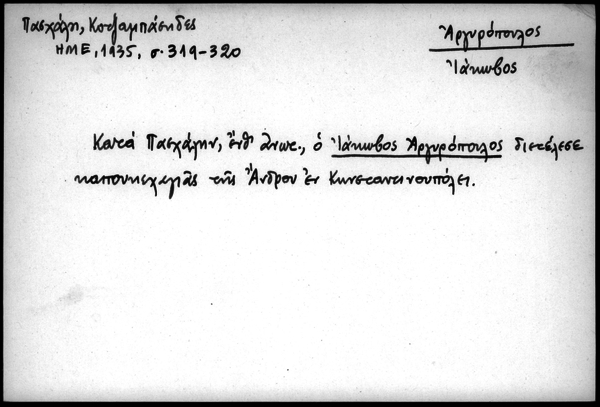 Πασχάλη, Κοτζαμπάσηδες
ΗΜΕ, 1935, σ. 319-320
Ἀργυρόπουλος
Ἰάκωβος
Κατά Πασχάλην, ἔνθ' ἀνωτ., ὁ Ἰάκωβος Ἀργυρόπουλος διετέλεσε
καπουκεχαγιᾶς τῆς Ἄνδρου ἐν Κωνσταντινουπόλει.